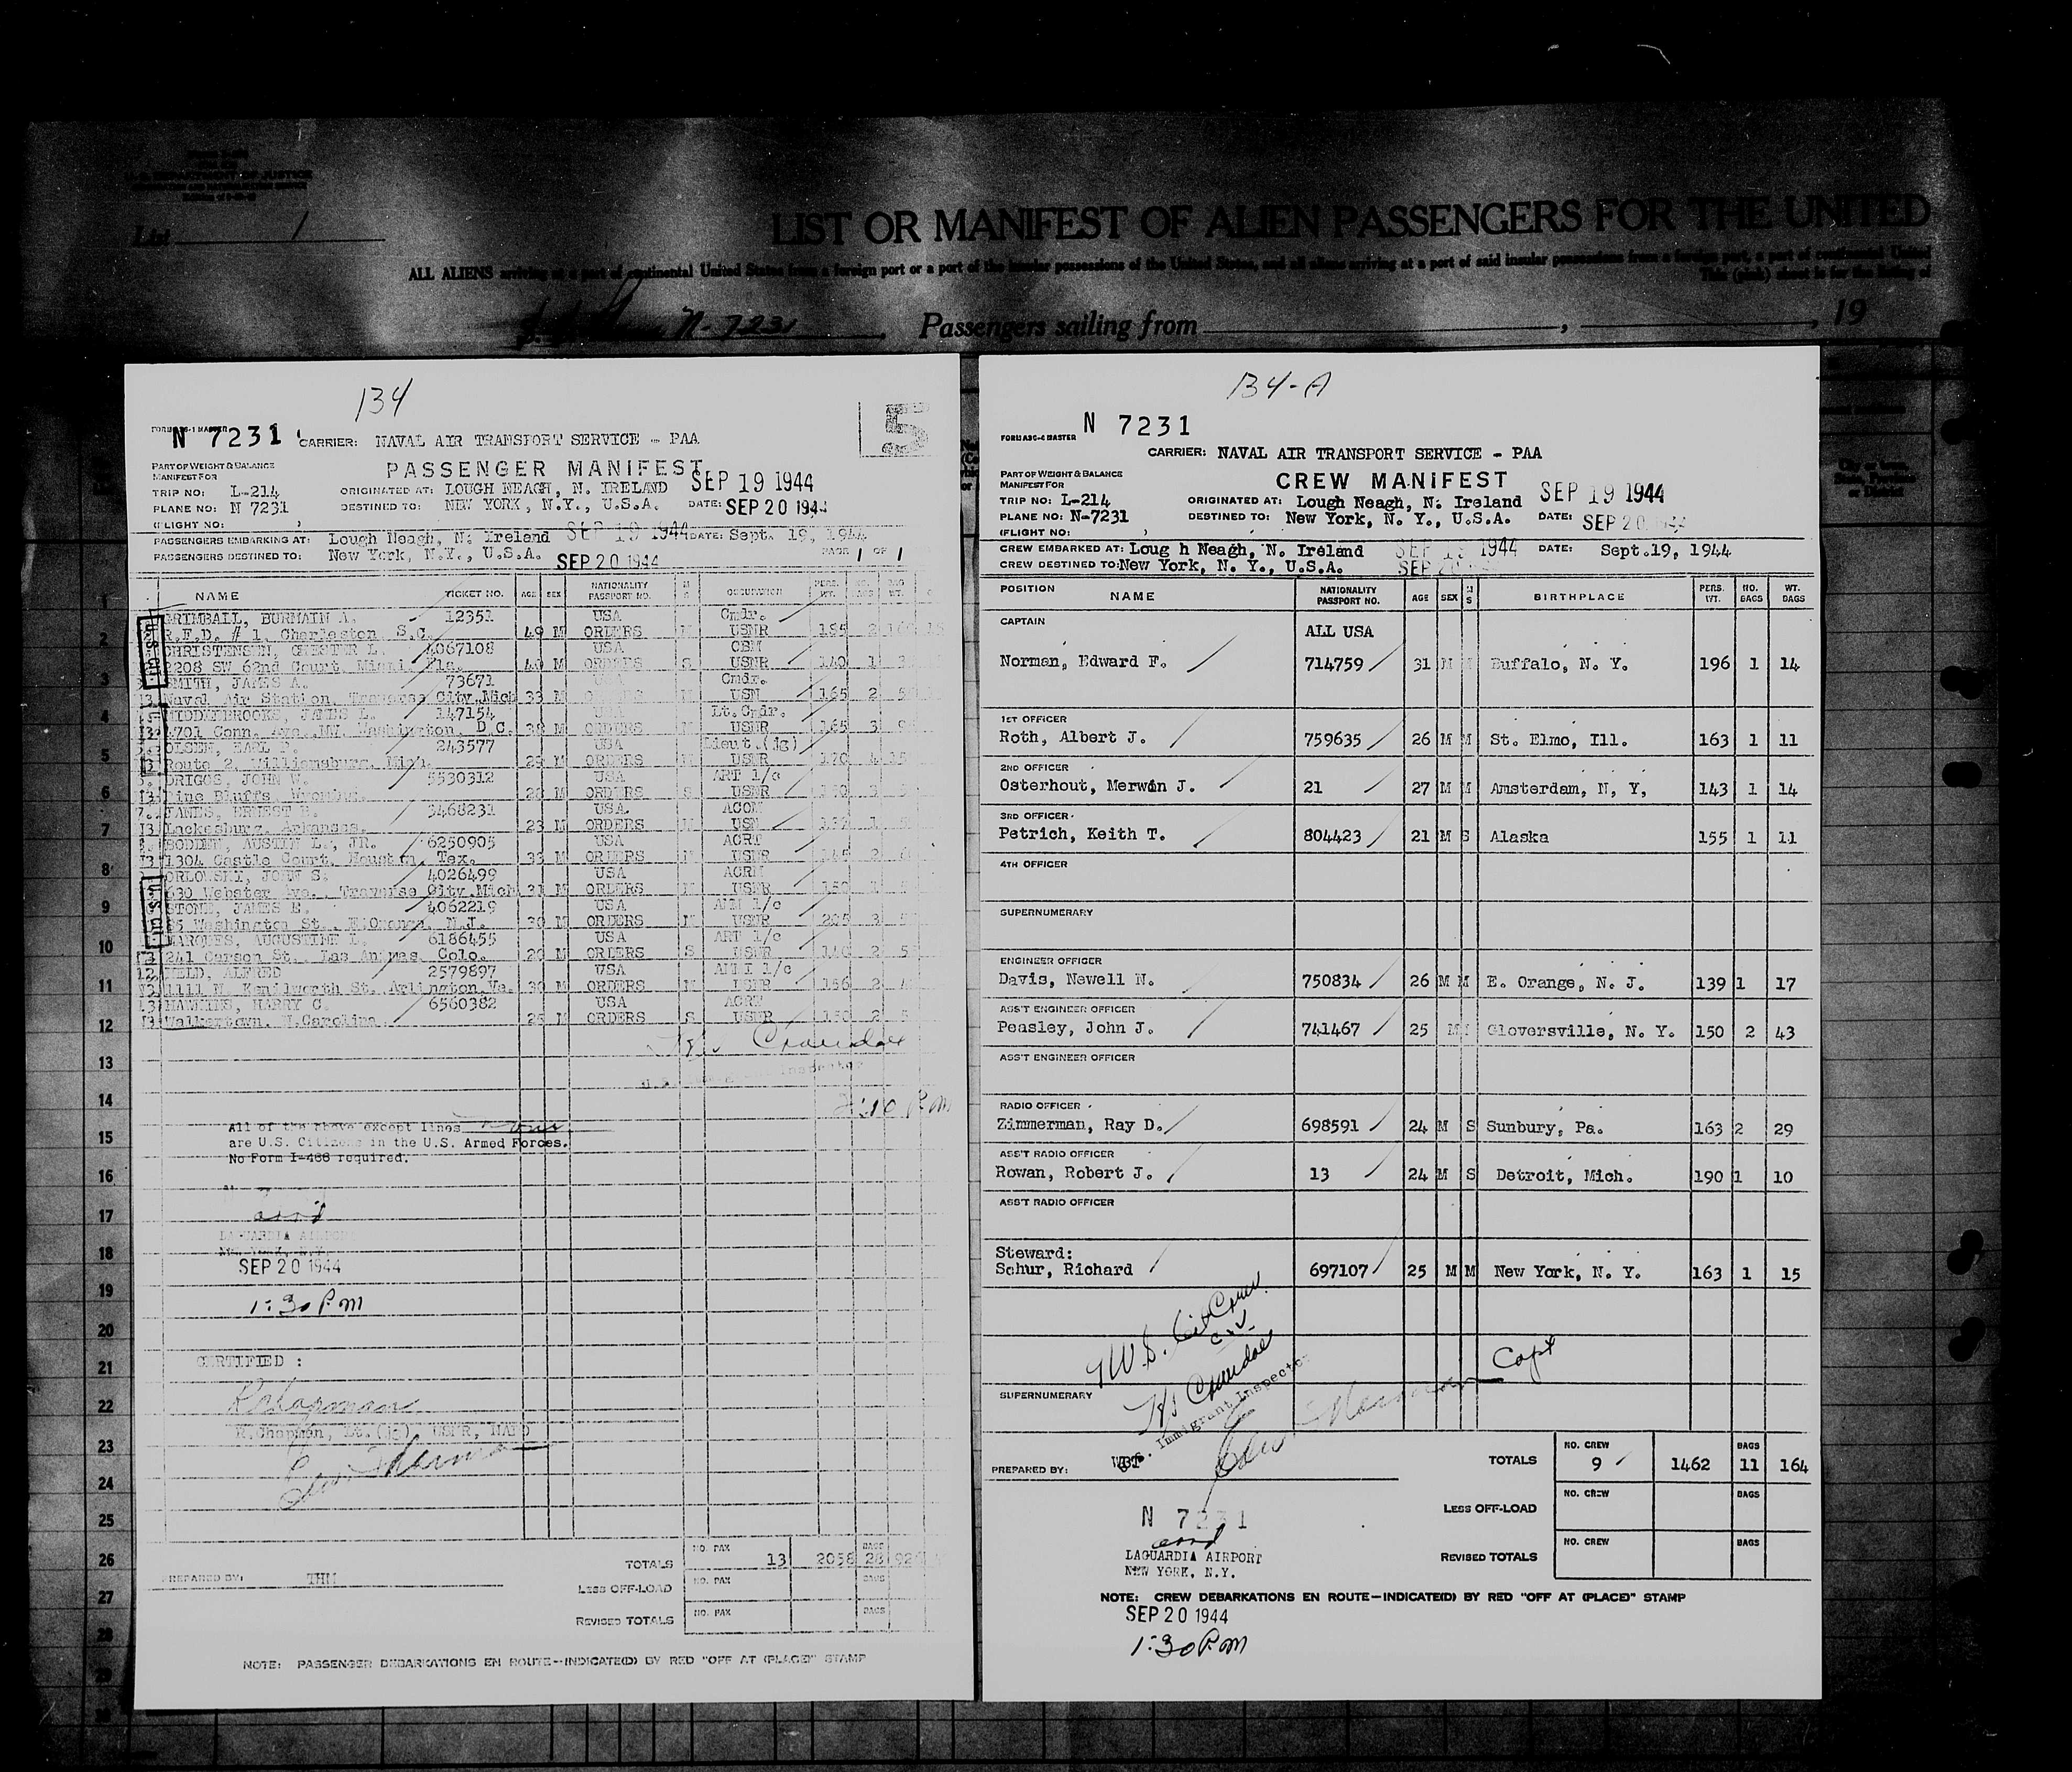 U.S. DEPARTMENT OF JUSTICE
List 1
LIST OR MANIFEST OF ALIEN PASSENGERS FOR THE UNITED
ALL ALIENS arriving at a port of continental United States from a foreign port or a port of the insular possessions of the United States, and all aliens arriving at a port of said insular possessions from a foreign port, a part of continental United
This (pink) sheet is for the listing of
N-7231 , Passengers sailing from , , 19
134
N 7231
CARRIER: NAVAL AIR TRANSPORT SERVICE - PAA
5
PART OF WEIGHT & BALANCE
MANIFEST FOR
PASSENGER MANIFEST
SEP 19 1944
TRIP NO: L-214
ORIGINATED AT: LOUGH NEAGH, N. IRELAND
PLANE NO: N 7231
DESTINED TO: NEW YORK, N.Y., U.S.A. DATE: SEP 20 1944
(FLIGHT NO: )
PASSENGERS EMBARKING AT: Lough Neagh, N. Ireland SEP 19 1944 DATE: Sept. 19, 1944
PASSENGERS DESTINED TO: New York, N.Y., U.S.A. SEP 20 1944 PAGE 1 OF 1
NAME TICKET NO. AGE SEX NATIONALITY PASSPORT NO. M S OCCUPATION PERS. WT. NO. BAGS BAG WT.
GRIMBALL, BURMAIN A. 12351 USA Cmdr.
R.F.D. # 1, Charleston, S.C. 49 M ORDERS M USNR 185 2
CHRISTENSEN, CHESTER L. 4067108 USA CBM
2208 SW 62nd Court, Miami, Fla. 40 M ORDERS S USNR 140 1
SMITH, JAMES A. 73671 USA Cmdr.
Naval Air Station, Traverse City, Mich 33 M ORDERS M USN 165 2
MIDDLEBROOKS, JAMES L. 147154 USA Lt. Cmdr.
4701 Conn. Ave. NW, Washington, D.C. 38 M ORDERS M USNR 165 3
OLSEN, EARL P. 243577 USA Lieut. (jg)
Route 2, Williamsburg, Mich. 29 M ORDERS M USNR 170 4
DRIGGS, JOHN W. 5530312 USA ART 1/c
Pine Bluffs, Wyoming. 28 M ORDERS S USNR
JAMES, ERNEST B. 3468231 USA ACOM
Lockesburg, Arkansas. 23 M ORDERS M USN 1
BODDEN, AUSTIN L., JR. 6250905 USA ACRT
1304 Castle Court, Houston, Tex. 33 M ORDERS M USNR 2
ORLOWSKI, JOHN S. 4026499 USA ACRM
630 Webster Ave., Traverse City, Mich 31 M ORDERS M USNR 150
STONE, JAMES E. 4062219 USA AMM 1/c
Washington St., E. Orange, N.J. 30 M ORDERS M USNR 205 3
MARQUES, AUGUSTINE L. 6186455 USA ART 1/c
241 Carson St., Las Animas, Colo. 20 M ORDERS S USNR 140 2
HELD, ALFRED 2579897 USA AMM 1/c
1111 N. Kenilworth St. Arlington, Va. 30 M ORDERS M USNR 156 2
HAWKINS, HARRY C. 6560382 USA ACRT
Walkertown, N. Carolina. 25 M ORDERS S USNR 150 2
Inspector
2:10 P.M
All of the above except lines none
are U.S. Citizens in the U.S. Armed Forces.
No Form I-466 required.
at
LAGUARDIA AIRPORT
New York, N.Y.
SEP 20 1944
1:30 P.M
CERTIFIED :
R Chapman
R. Chapman, Lt. (jg), USNR, NATS
TOTALS NO. PAX 13 2058 BAGS 28 92
PREPARED BY: THM
LESS OFF-LOAD NO. PAX BAGS
REVISED TOTALS NO. PAX BAGS
NOTE: PASSENGER DEBARKATIONS EN ROUTE—INDICATE(D) BY RED "OFF AT (PLACE)" STAMP
134-A
N 7231
FORM ABC-4 MASTER
CARRIER: NAVAL AIR TRANSPORT SERVICE - PAA
PART OF WEIGHT & BALANCE
MANIFEST FOR
CREW MANIFEST
SEP 19 1944
TRIP NO: L-214
ORIGINATED AT: Lough Neagh, N. Ireland
PLANE NO: N-7231
DESTINED TO: New York, N. Y., U.S.A. DATE: SEP 20 1944
(FLIGHT NO: )
CREW EMBARKED AT: Loug h Neagh, N. Ireland SEP 19 1944 DATE: Sept.19, 1944
CREW DESTINED TO: New York, N. Y., U.S.A. SEP 20
POSITION NAME NATIONALITY PASSPORT NO. AGE SEX M S BIRTHPLACE PERS. WT. NO. BAGS WT. BAGS
CAPTAIN ALL USA
Norman, Edward F. 714759 31 M M Buffalo, N. Y. 196 1 14
1ST OFFICER
Roth, Albert J. 759635 26 M M St. Elmo, Ill. 163 1 11
2ND OFFICER
Osterhout, Merwin J. 21 27 M M Amsterdam, N, Y, 143 1 14
3RD OFFICER
Petrich, Keith T. 804423 21 M S Alaska 155 1 11
4TH OFFICER
SUPERNUMERARY
ENGINEER OFFICER
Davis, Newell N. 750834 26 M M E. Orange, N. J. 139 1 17
ASS'T ENGINEER OFFICER
Peasley, John J. 741467 25 M Gloversville, N. Y. 150 2 43
ASS'T ENGINEER OFFICER
RADIO OFFICER
Zimmerman, Ray D. 698591 24 M S Sunbury, Pa. 163 2 29
ASS'T RADIO OFFICER
Rowan, Robert J. 13 24 M S Detroit, Mich. 190 1 10
ASS'T RADIO OFFICER
Steward:
Schur, Richard 697107 25 M M New York, N. Y. 163 1 15
Capt
SUPERNUMERARY
U.S. Immigrant Inspector
PREPARED BY:
TOTALS NO. CREW 9 1462 BAGS 11 164
LESS OFF-LOAD NO. CREW BAGS
REVISED TOTALS NO. CREW BAGS
N 7231
LAGUARDIA AIRPORT
NEW YORK, N.Y.
NOTE: CREW DEBARKATIONS EN ROUTE—INDICATE(D) BY RED "OFF AT (PLACE)" STAMP
SEP 20 1944
1:30 P.M
1
2
3
4
5
6
7
8
9
10
11
12
13
14
15
16
17
18
19
20
21
22
23
24
25
26
27
28
29